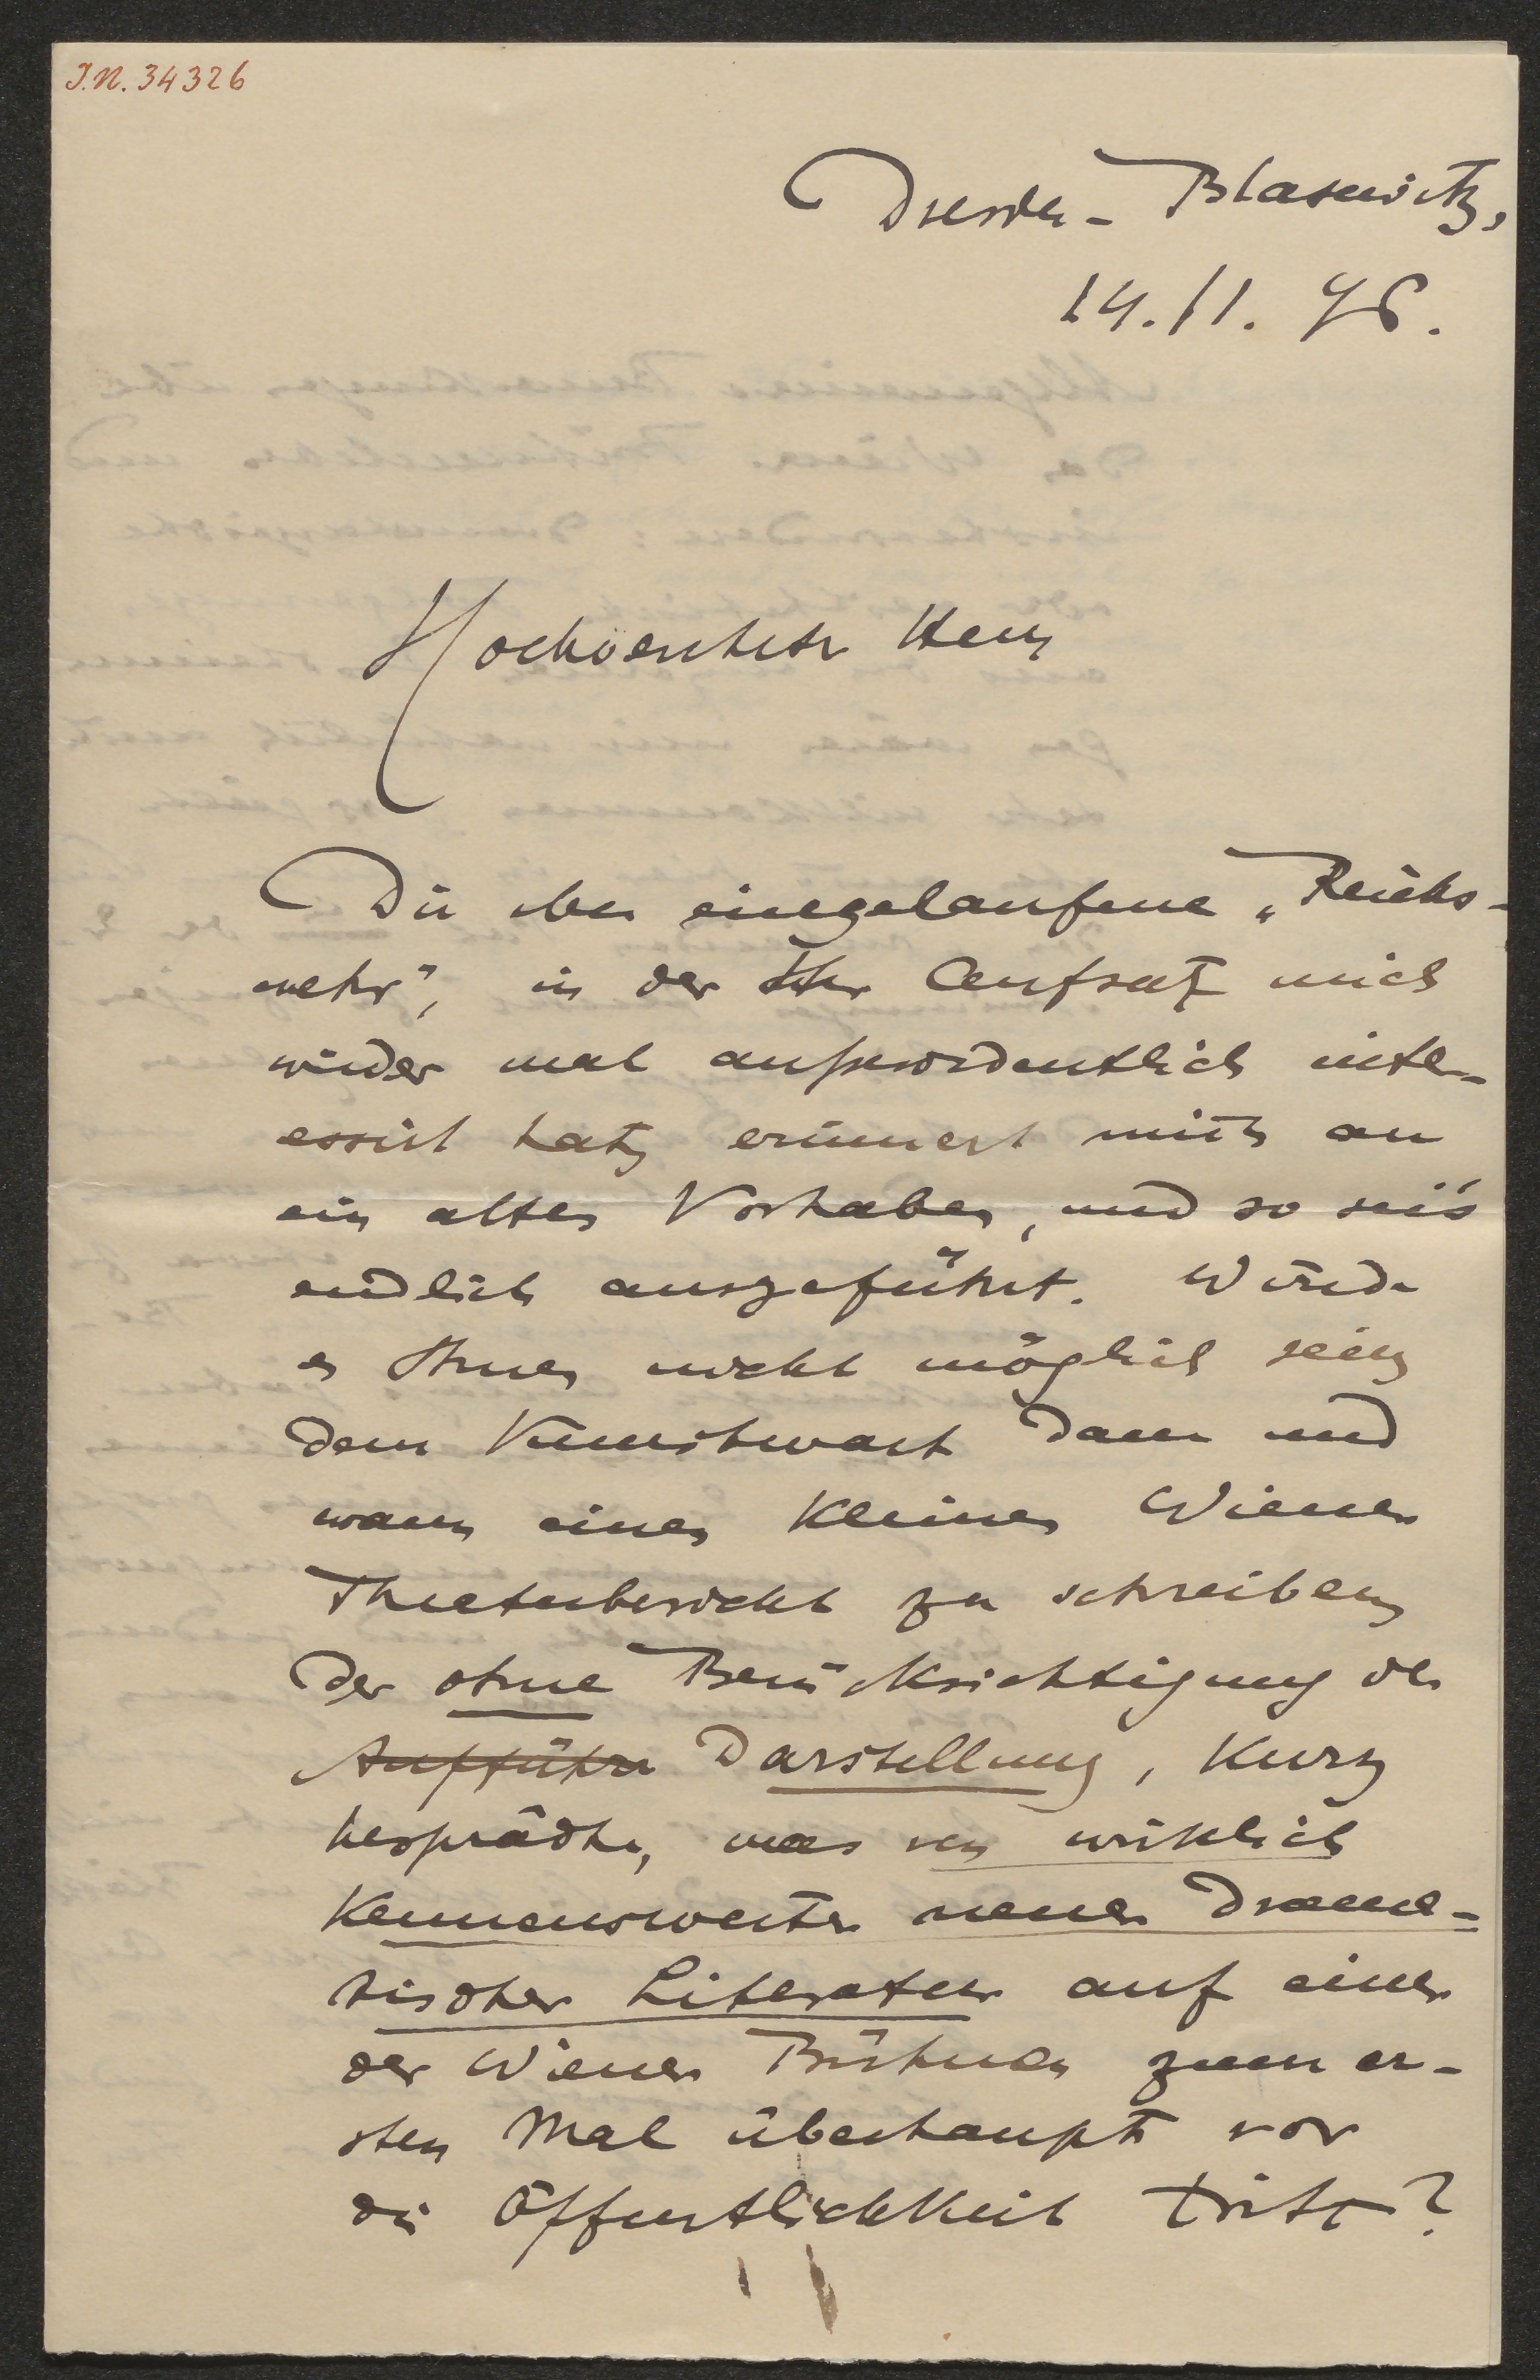 J.N. 34326
Dresden-Blasewitz,
14.11.96.
Hochverehrter Herr
Die eben eingelaufene „Reichs-
wehr“, in der Ihr Aufsatz mich
wieder mal ausserordentlich inter-
essirt hat, erinnert mich an
ein altes Vorhaben, und so sei's
endlich ausgeführt. Würde
es Ihnen nicht möglich sein,
dem Kunstwart dann und
wann einen kleinen Wiener
Theaterbericht zu schreiben,
der ohne Berücksichtigung der
Aufführu Darstellung, kurz
bespräche, was von wirklich
kennenswerter neuer drama-
tischer Literatur auf einer
der Wiener Bühnen zum er-
sten Mal überhaupt vor
die Öffentlichkeit tritt?